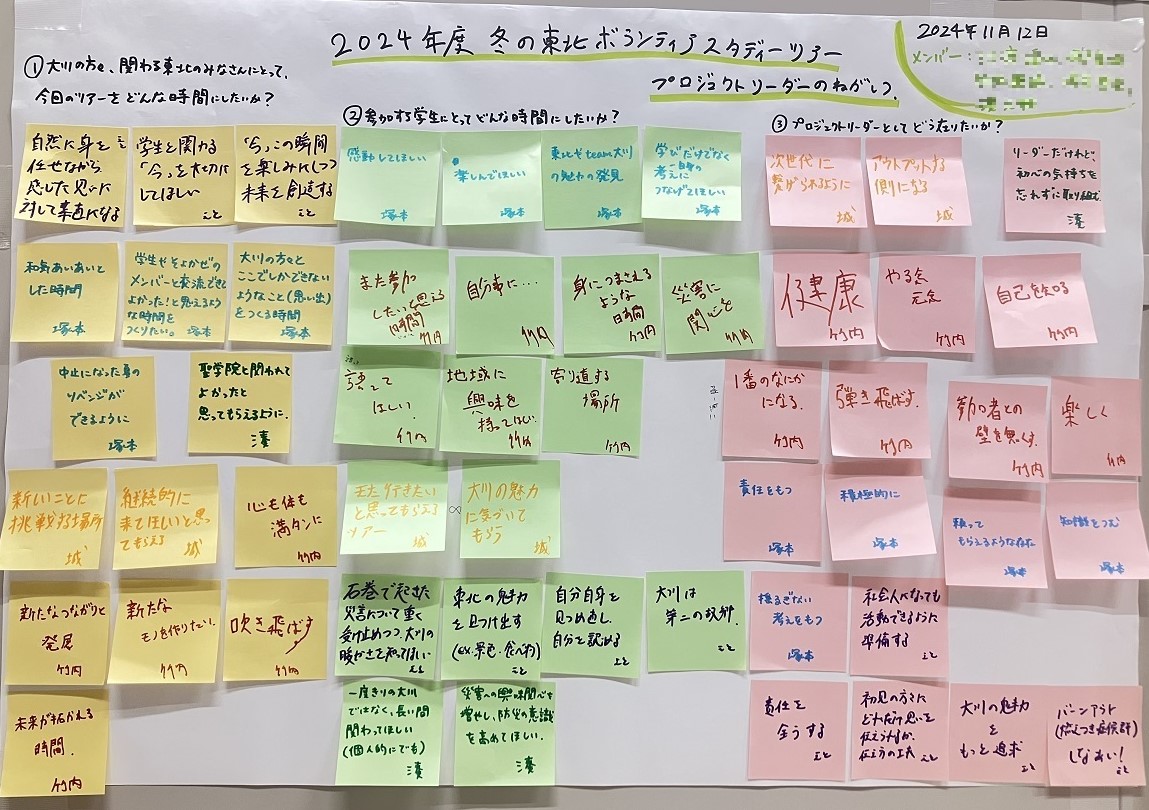 2024年度 冬の東北ボランティアスタディーツアー
プロジェクトリーダーのねがしつ.
2024年11月12日
メンバー:
① 大川の方々、関わる東北のみなさんにとって、
今回のツアーをどんな時間にしたいか?
自然に身を
任せながら
感じた思いに
対して素直になる
学生と関わる
「今」を大切に
してほしい
こと
「今」この瞬間
を楽しみに(しつつ
未来を創造する
こと
和気あいあいと
した時間
塚本
学生やそよかぜの
メンバーと交流できて
よかった!と思えるよう
な時間を
つくりたい。塚本
大川の方々と
ここでしかできない
ようなこと(思い出)
をつくる時間
塚本
中止になった夏の
リベンジが
できるように
塚本
聖学院と関われて
よかったと
思ってもらえるように.
湊
新しいことに
挑戦する場所
城
継続的に
来てほしいと思っ
てもらえる
城
心も体も
満タンに
竹内
新たなつながりと
発展
竹内
新たな
モノを作りたい.
竹内
吹き飛ばす
竹内
未来が拓かれる
時間.
竹内
②参加する学生にとってどんな時間にしたいか?
感動してほしい
塚本
楽しんでほしい
塚本
東北やteam大川
の魅力の発見
塚本
学びだけでなく
考えに
つなげてほしい
塚本
また参加
したいと思える
時間
竹内
自分事に…
竹内
身につまされる
ような
時間
竹内
災害に
関心を
竹内
誇って
ほしい
竹内
地域に
興味を
持ってほしい
竹内
寄り道する
場所
竹内
また行きたい
と思ってもらえる
ツアー
城
大川の魅力
に気づいて
もらう
城
石巻で起きた
災害について重く
受け止めつつ、大川の
暖かさを知ってほしい
こと
東北の魅力
を見つけ出す
(ex.景色・食べ物)
こと
自分自身を
見つめ直し、
自分を認める
こと
大川は
第二の故郷.
こと
一度きりの大川
ではなく、長い間
関わってほしい
(個人的にでも)
湊
災害への興味関心を
増やし、防災の意識
を高めてほしい.
湊
③ プロジェクトリーダーとしてどう在りたいか?
次世代に
繋げられるように
城
アウトプットする
側になる
城
リーダーだけれど、
初心の気持ちを
忘れずに取り組む.
湊
健康
竹内
やる気
元気
竹内
自己を知る
竹内
1番のなにか
になる.
竹内
弾き飛ばす.
竹内
参加者との
壁を無くす.
竹内
楽しく
竹内
責任をもつ
塚本
積極的に
塚本
頼って
もらえるような存在
塚本
知識をつむ
塚本
揺るぎない
考えをもつ
塚本
社会人になっても
活動できるように
準備する
こと
責任を
全うする
こと
初見の方々に
どれだけ思いを
伝えられるか.
伝え方の工夫
こと
大川の魅力
を
もっと追求
こと
バーンアウト
(燃えつき症候群)
しなぁい!
こと